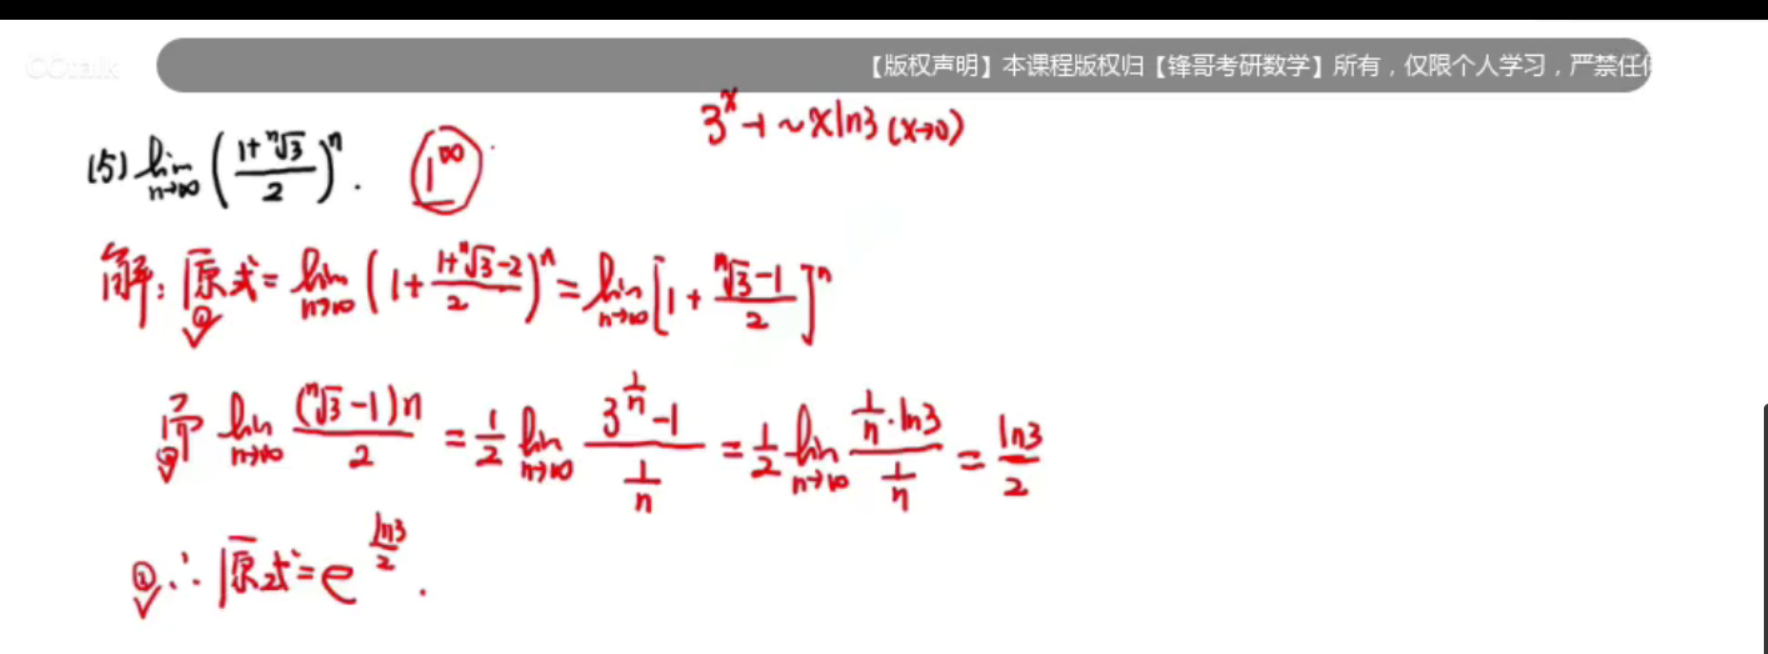 CCtalk
【版权声明】本课程版权归【锋哥考研数学】所有，仅限个人学习，严禁任何
3^x-1~xln3 (x→0)
(5) lim_{n→∞} ((1+ⁿ√3)/2)^n. 1^∞
解: 原式= lim_{n→∞} (1+(1+ⁿ√3-2)/2)^n = lim_{n→∞} [1+(ⁿ√3-1)/2]^n
①
而 lim_{n→∞} (ⁿ√3-1)n/2 = 1/2 lim_{n→∞} (3^{1/n}-1)/(1/n) = 1/2 lim_{n→∞} (1/n·ln3)/(1/n) = ln3/2
②
∴ 原式=e^{ln3/2}.